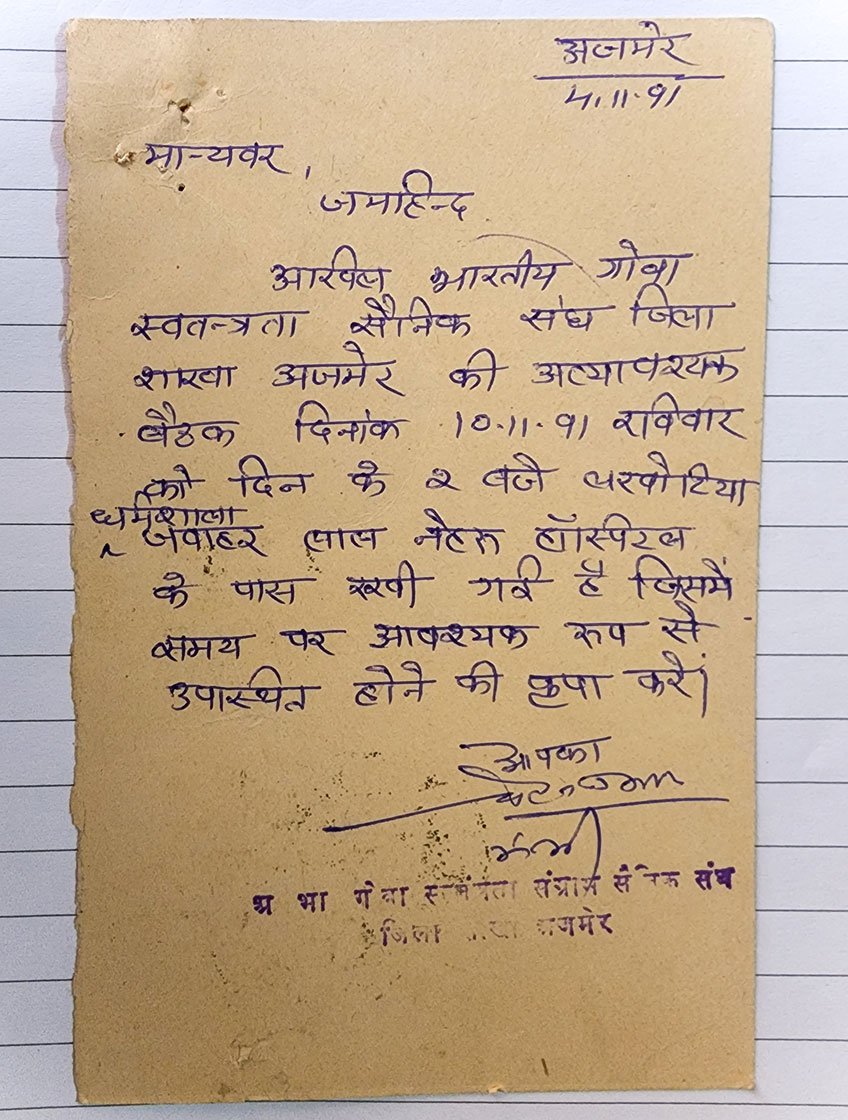 अजमेर
4.11.91
मान्यवर,
जयहिन्द
अखिल भारतीय गोवा
स्वतन्त्रता सैनिक संघ जिला
शाखा अजमेर की अत्यावश्यक
बैठक दिनांक 10.11.91 रविवार
को दिन के २ बजे
धर्मशाला
जवाहर लाल नेहरु हॉस्पिटल
के पास रखी गई है जिसमें
समय पर आवश्यक रूप से
उपस्थित होने की कृपा करें।
आपका
मंत्री
अ भा गोवा संग्राम सैनिक संघ
जिला शाखा अजमेर